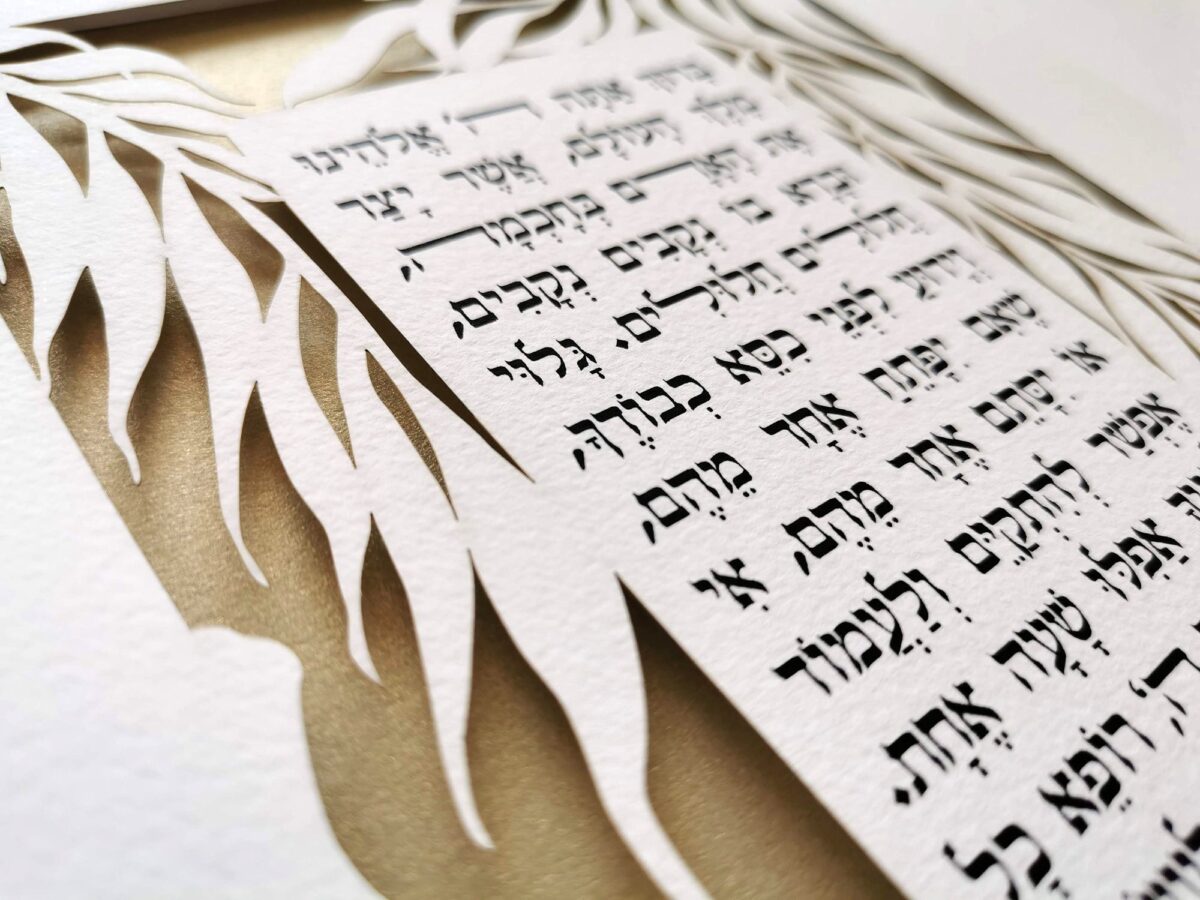 אַתָּה ה' אֱלֹהֵינוּ
הָעוֹלָם, אֲשֶׁר יָצַר
אֶת הָאָדָם בְּחָכְמָה,
וּבָרָא בוֹ נְקָבִים נְקָבִים,
חֲלוּלִים חֲלוּלִים. גָּלוּי
וְיָדוּעַ לִפְנֵי כִסֵּא כְבוֹדֶךָ,
שֶׁאִם יִפָּתֵחַ אֶחָד מֵהֶם,
אוֹ יִסָּתֵם אֶחָד מֵהֶם, אִי
אֶפְשַׁר לְהִתְקַיֵּם וְלַעֲמוֹד
אֲפִלּוּ שָׁעָה אֶחָת.
ה', רוֹפֵא כָל